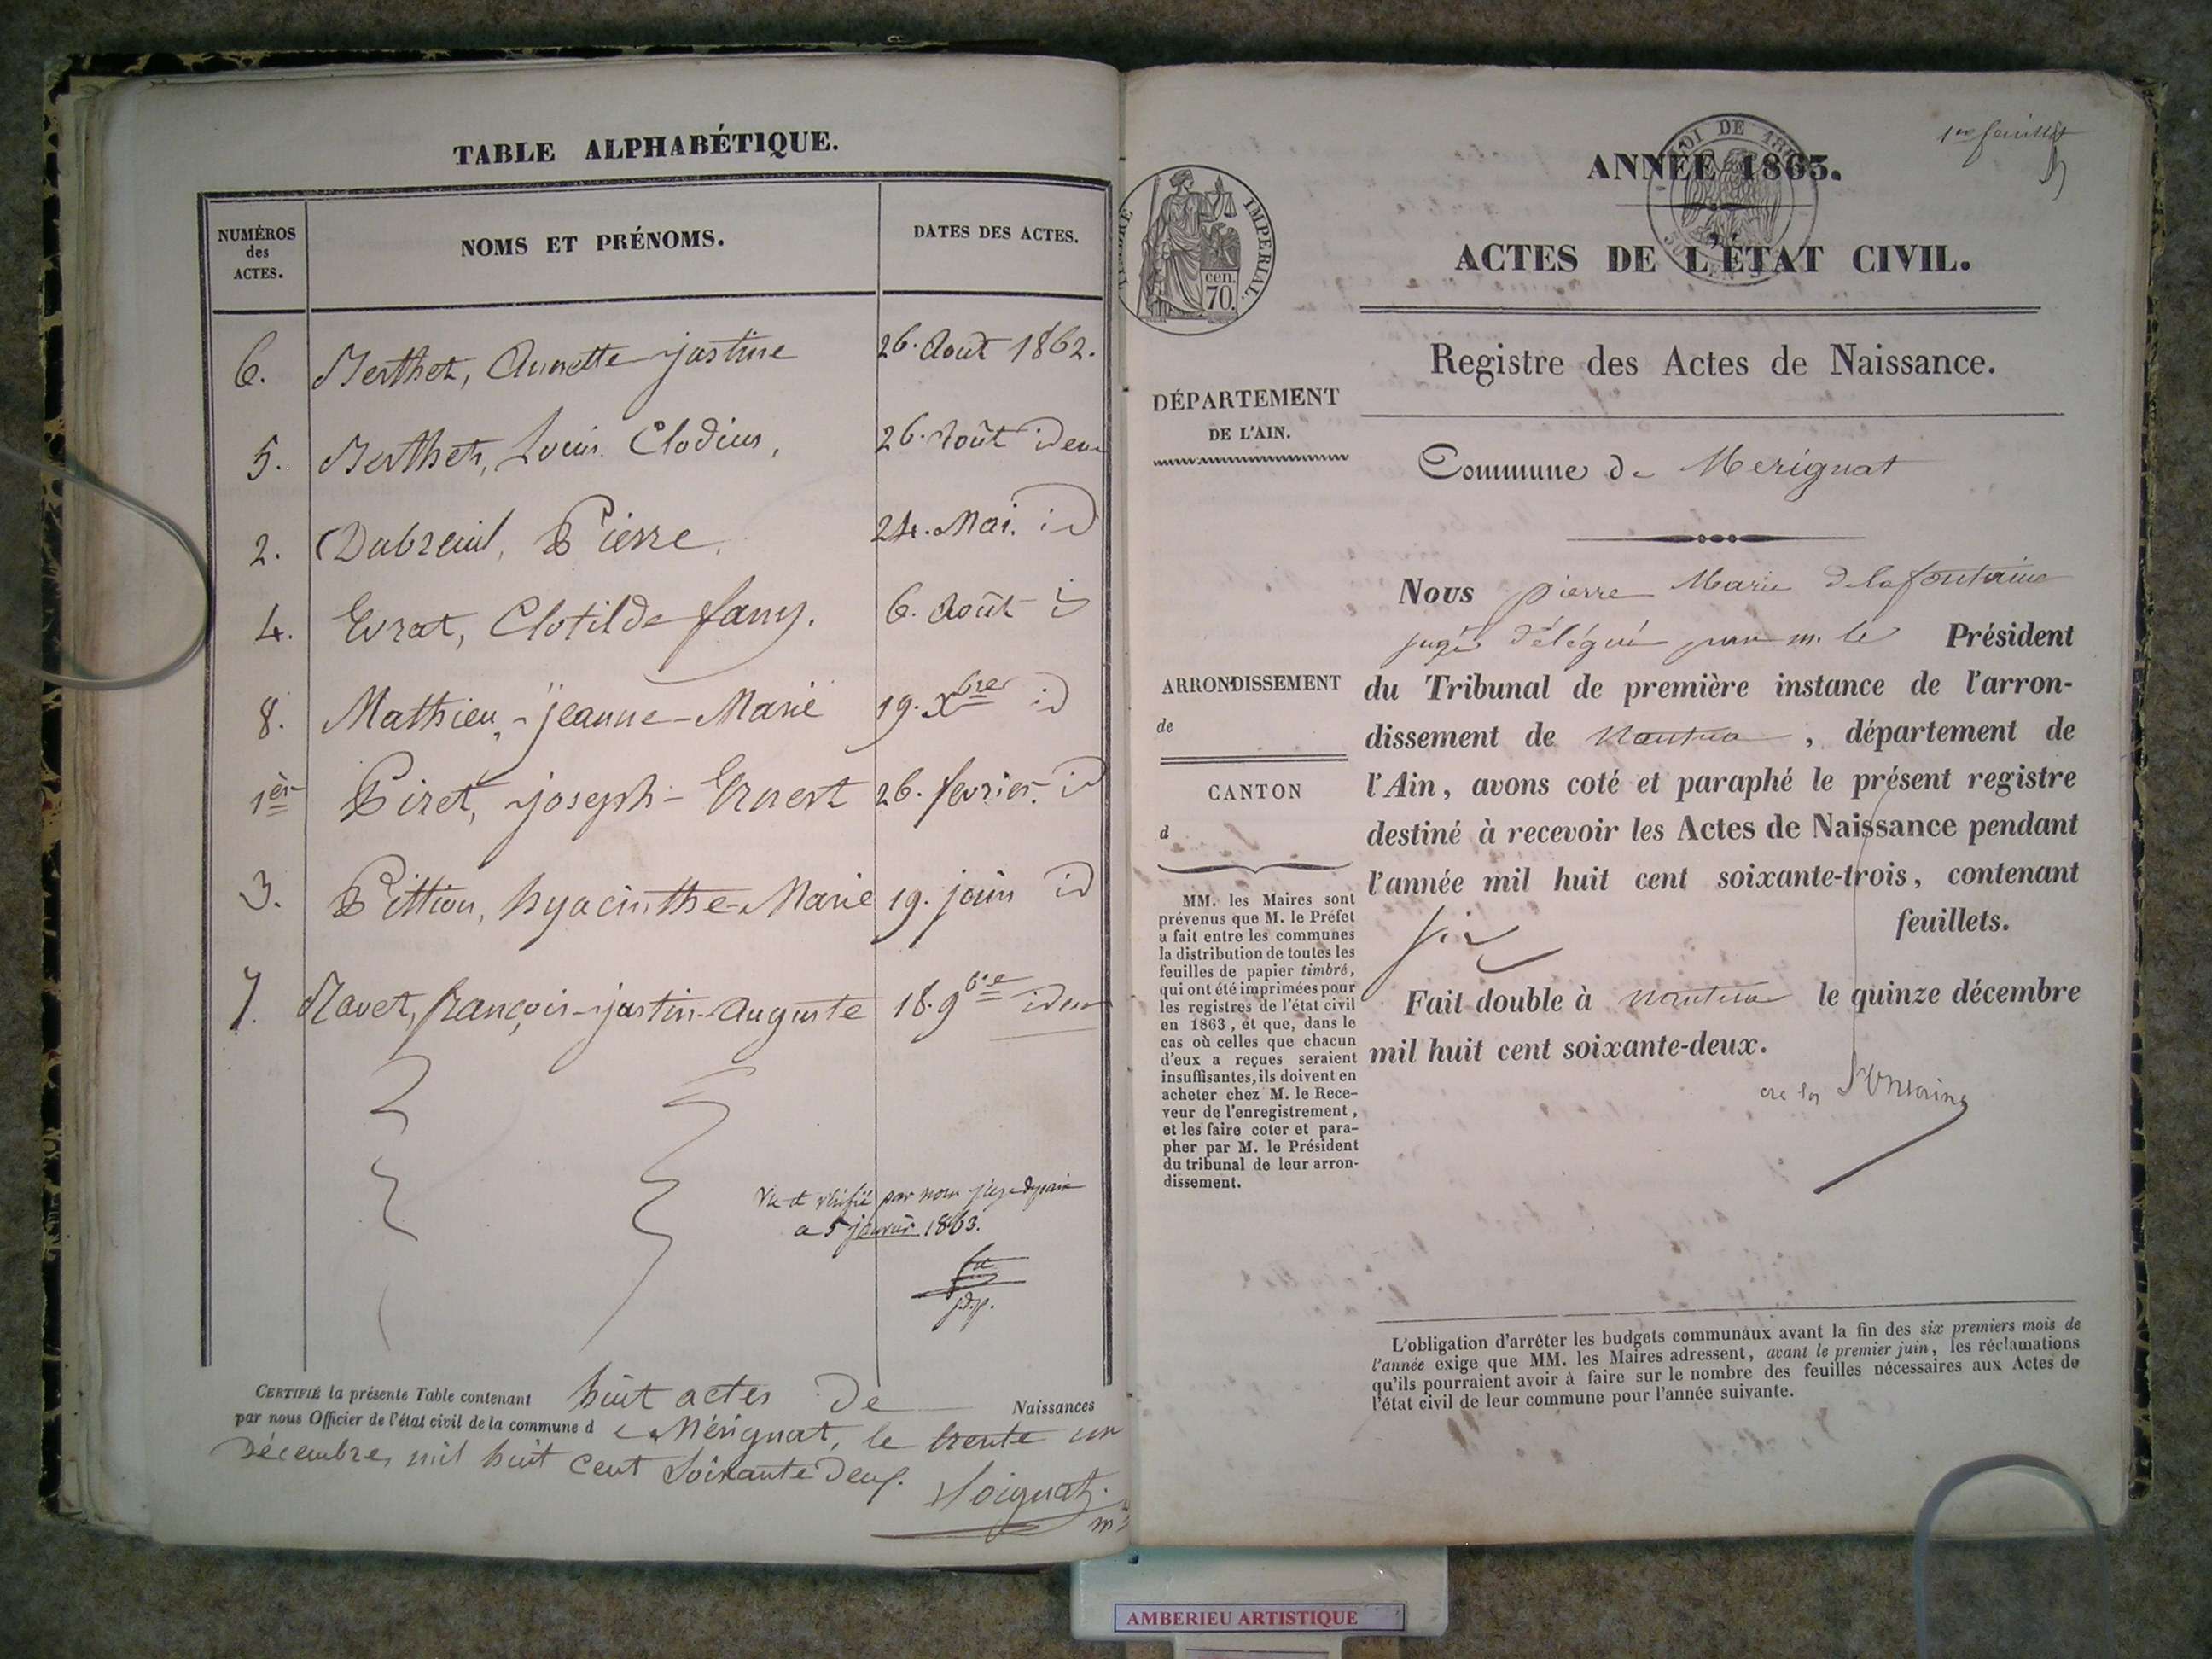 TABLE ALPHABÉTIQUE.
NUMÉROS des ACTES.
NOMS ET PRÉNOMS.
DATES DES ACTES.
6. Berthet, Annette justine 26. Août 1862.
5. Berthet, Louis Clodius, 26. Août idem
2. Dubreuil, Pierre. 24. Mai. id
4. Evrat, Clotilde fany. 6. Août id
8. Mathieu, jeanne-Marie 19. Xbre id
1er Piret, joseph-Ernest 26. fevrier. id
3. Pittion, hyacinthe-Marie 19. juin id
7. Ravet, françois-justin-Auguste 18. 9bre idem
Vu et vérifié par nous juge de paix
a 5 janvier 1863.
j.d.p.
CERTIFIÉ la présente Table contenant huit actes de Naissances
par nous Officier de l'état civil de la commune de Mérignat, le trente un
Décembre, mil huit cent soixante deux.
1er feuillet
LOI DE
TIMBRE IMPERIAL.
cen. 70.
ANNÉE 1863.
ACTES DE L'ÉTAT CIVIL.
Registre des Actes de Naissance.
DÉPARTEMENT
DE L'AIN.
Commune de Merignat
ARRONDISSEMENT
de
CANTON
d
MM. les Maires sont
prévenus que M. le Préfet
a fait entre les communes
la distribution de toutes les
feuilles de papier timbré,
qui ont été imprimées pour
les registres de l'état civil
en 1863, et que, dans le
cas où celles que chacun
d'eux a reçues seraient
insuffisantes, ils doivent en
acheter chez M. le Rece-
veur de l'enregistrement,
et les faire coter et para-
pher par M. le Président
du tribunal de leur arron-
dissement.
Nous pierre Marie delafontaine
juge délégué par m. le Président
du Tribunal de première instance de l'arron-
dissement de Nantua, département de
l'Ain, avons coté et paraphé le présent registre
destiné à recevoir les Actes de Naissance pendant
l'année mil huit cent soixante-trois, contenant
six feuillets.
Fait double à nantua le quinze décembre
mil huit cent soixante-deux.
de la Fontaine
L'obligation d'arrêter les budgets communaux avant la fin des six premiers mois de
l'année exige que MM. les Maires adressent, avant le premier juin, les réclamations
qu'ils pourraient avoir à faire sur le nombre des feuilles nécessaires aux Actes de
l'état civil de leur commune pour l'année suivante.
AMBERIEU ARTISTIQUE